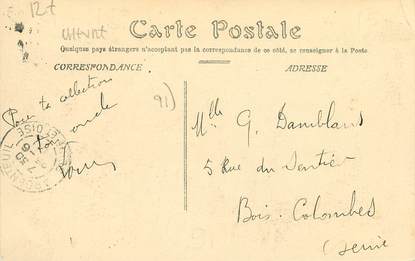 12t
Carte Postale
Quelques pays étrangers n'acceptant pas la correspondance de ce côté, se renseigner à la Poste
CORRESPONDANCE
ADRESSE
Pour ta collection
91)
Mlle G. Damblans
5 Rue du Sentier
Bois-Colombes
(Seine